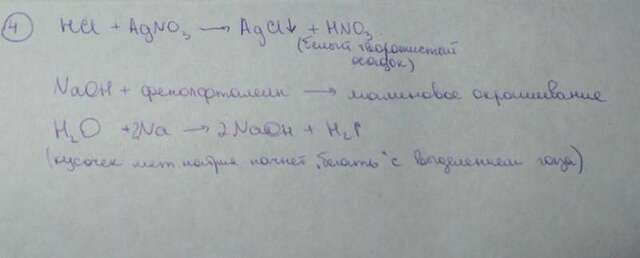 4) HCl + AgNO₃ → AgCl↓ + HNO₃.
(белый творожистый
осадок)
NaOH + фенолфталеин → малиновое окрашивание
H₂O + 2Na → 2NaOH + H₂↑
(кусочек мет. натрия начнет "бегать" с выделением газа)